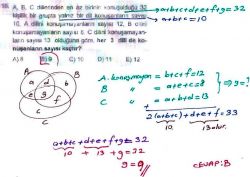 18. A, B, C dillerinden en az birinin konuşulduğu 32
kişilik bir grupta yalnız bir dil konuşanların sayısı
10, A dilini konuşmayanların sayısı 12, B dilini
konuşmayanların sayısı 8, C dilini konuşmayan-
ların sayısı 13 olduğuna göre, her 3 dili de ko-
nuşanların sayısı kaçtır?
A) 8 B) 9 C) 10 D) 11 E) 12
a+b+c+d+e+f+g=32
a+b+c=10
A konuşmayan = b+c+f=12
B " = a+c+e=8
C " = a+b+d=13
⇒ g=?
2(a+b+c)+d+e+f=33
10
13 olur.
A
B
C
a
d
b
e
g
f
c
a+b+c+d+e+f+g=32
10 + 13 + g = 32
g=9
CEVAP: B